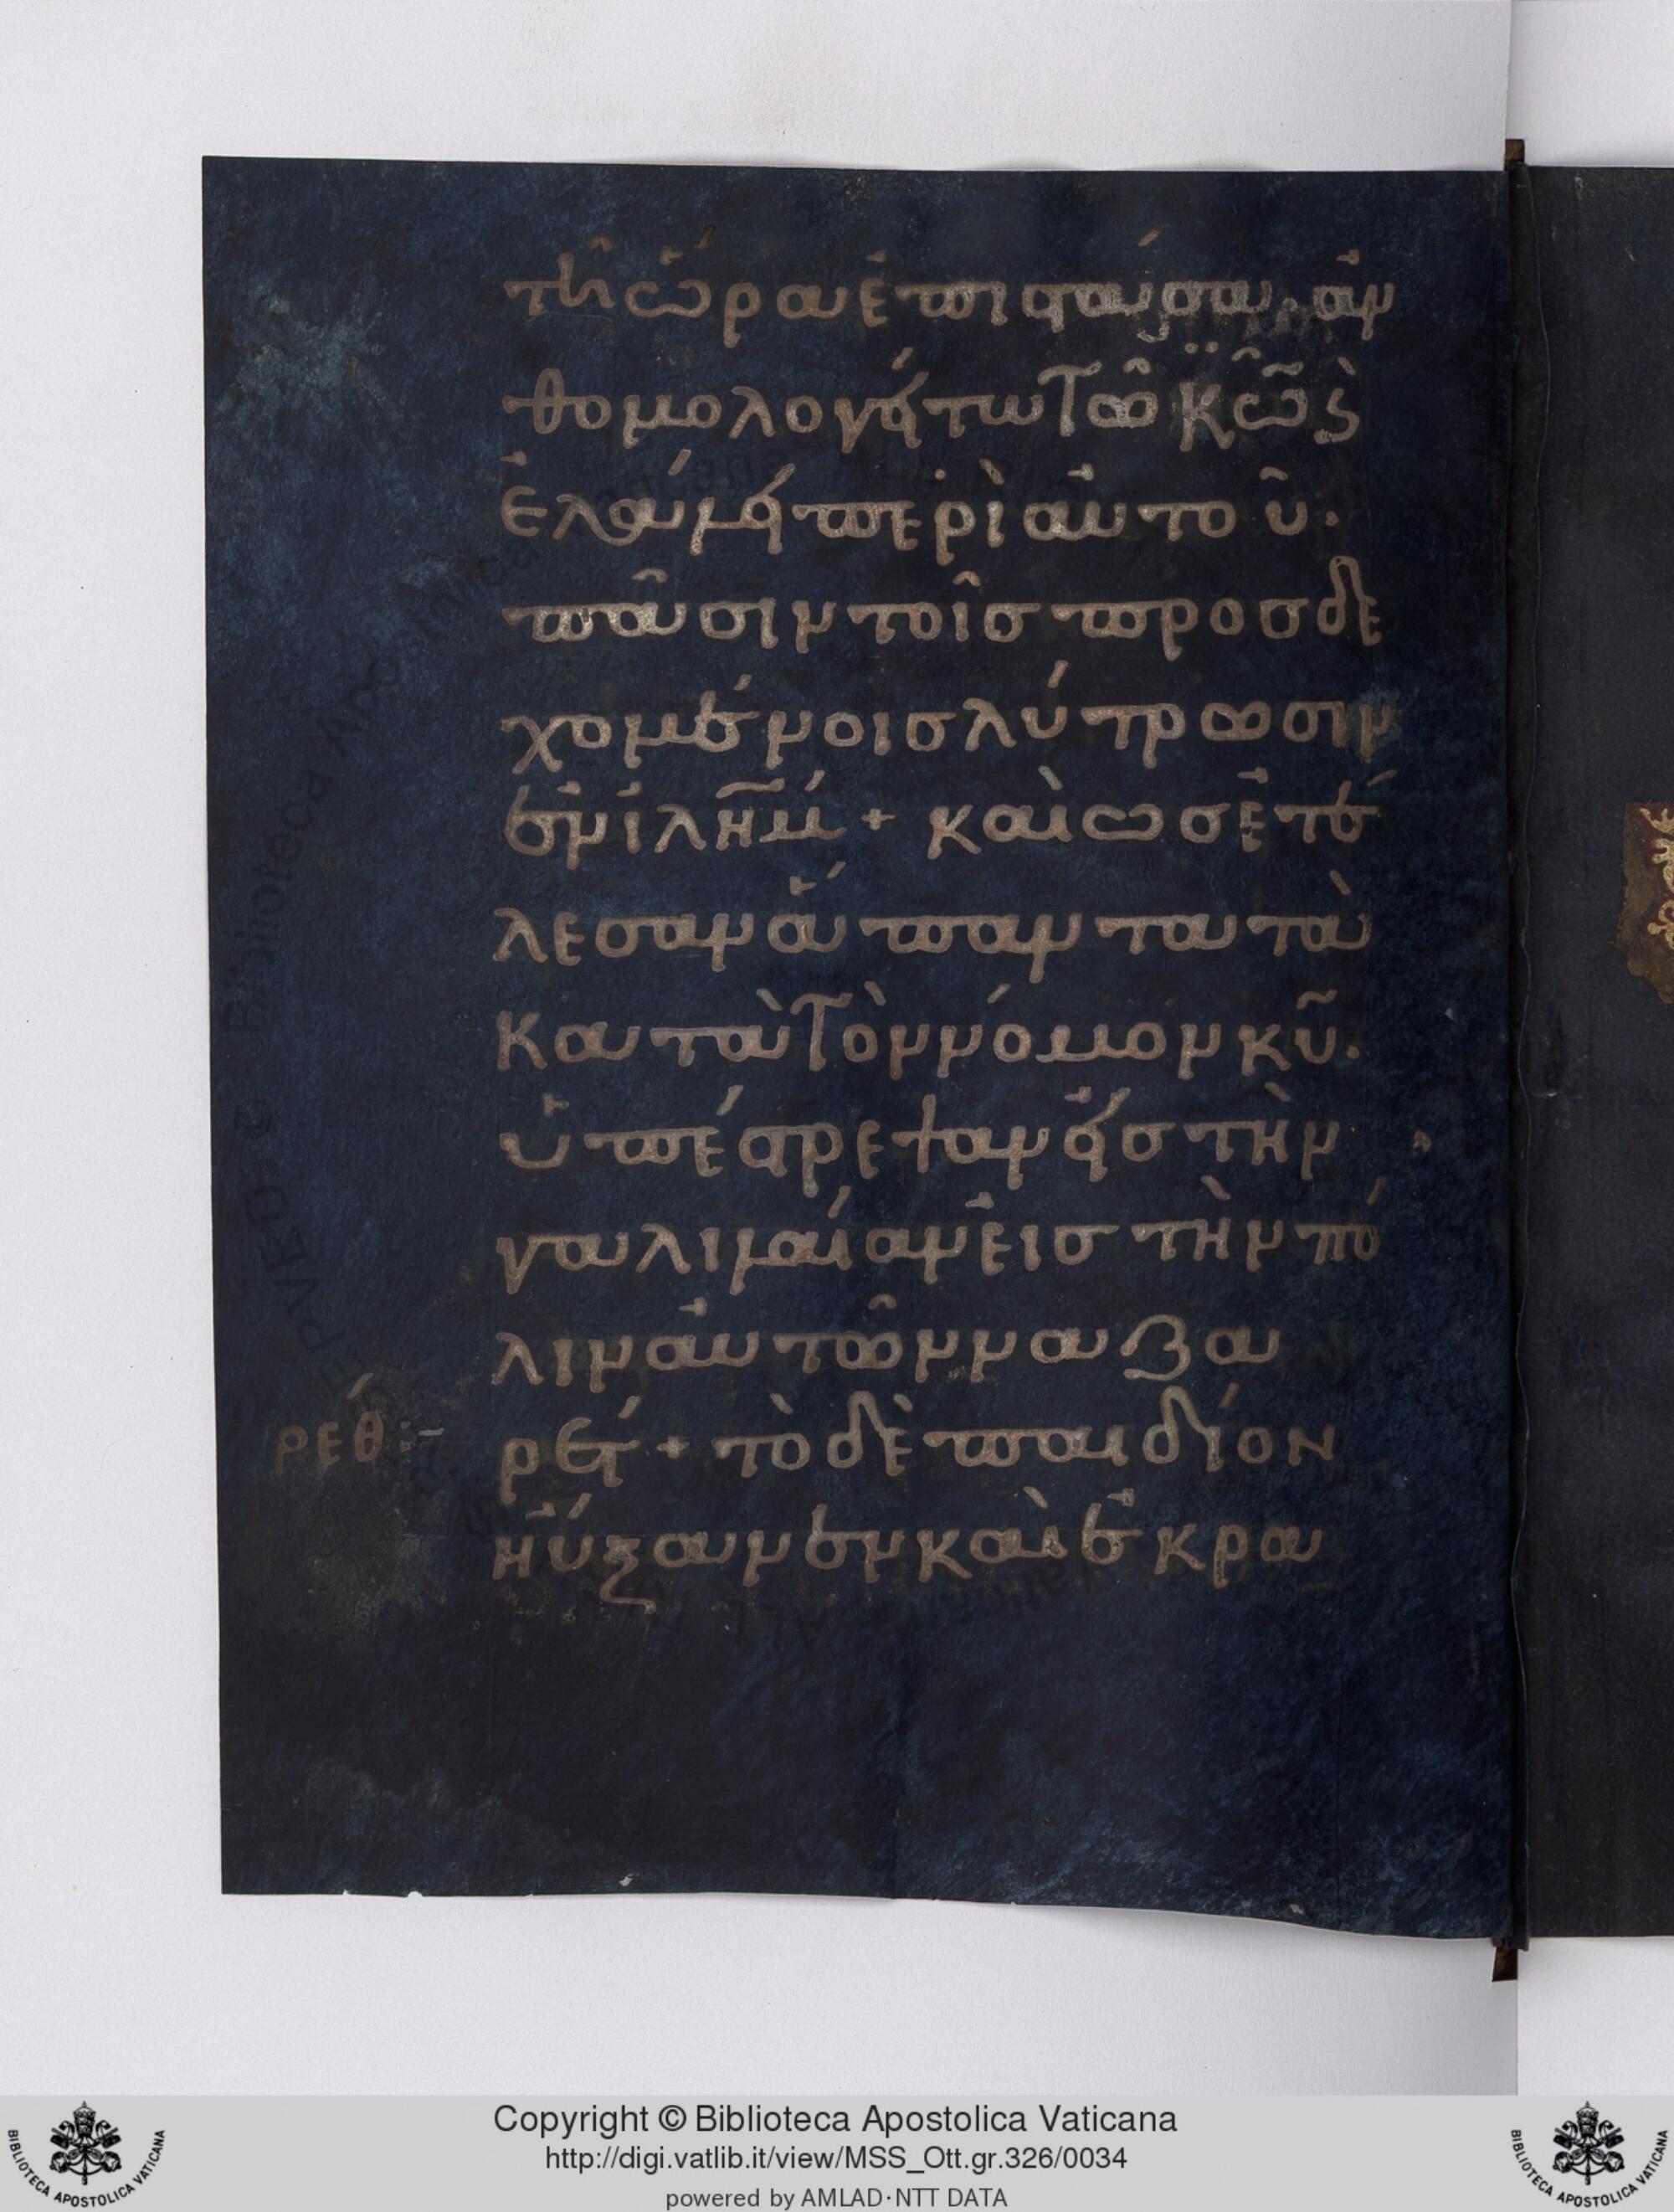 τῆ ὥρα ἐπιστάσα, ἀν
θομολογεῖτω τῶ κῶ ϗ
ἐλάλει περὶ αὐτοῦ.
πᾶσιν τοῖς προσδε
χομένοις λύτρωσιν
ἐν ἰλῆμ + καὶ ὡς ἐτέ
λεσαν ἅπαντα τὰ
κατὰ τὸν νόμον κῦ.
ὑπέστρεψαν εἰς τὴν
γαλιλαίαν εἰς τὴν πό
λιν αὐτῶν ναζα
ρέτ + τὸ δὲ παιδίον
ρέθ :-
ηὔξανεν καὶ ἐκρα
Copyright © Biblioteca Apostolica Vaticana
http://digi.vatlib.it/view/MSS_Ott.gr.326/0034
powered by AMLAD·NTT DATA
BIBLIOTECA APOSTOLICA VATICANA
BIBLIOTECA APOSTOLICA VATICANA